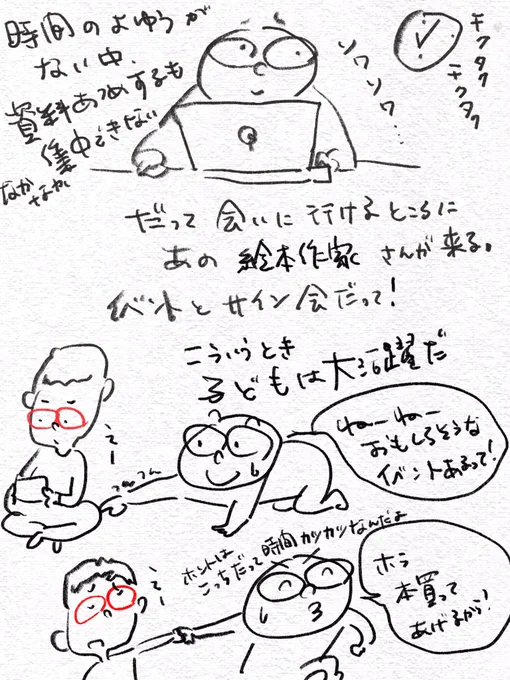 時間のよゆうが
ない中、
資料あつめするも
集中できない
なかなか
ソワソワ…
チクタク
チクタク
だって会いに行けるところに
あの絵本作家さんが来る。
イベントとサイン会だって!
こういうとき
子どもは大活躍だ
ねーねー
おもしろそうな
イベントあるって!
えー
つんつん
ホントは
こっちだって時間カツカツなんだよ
えー
ホラ
本買って
あげるから!